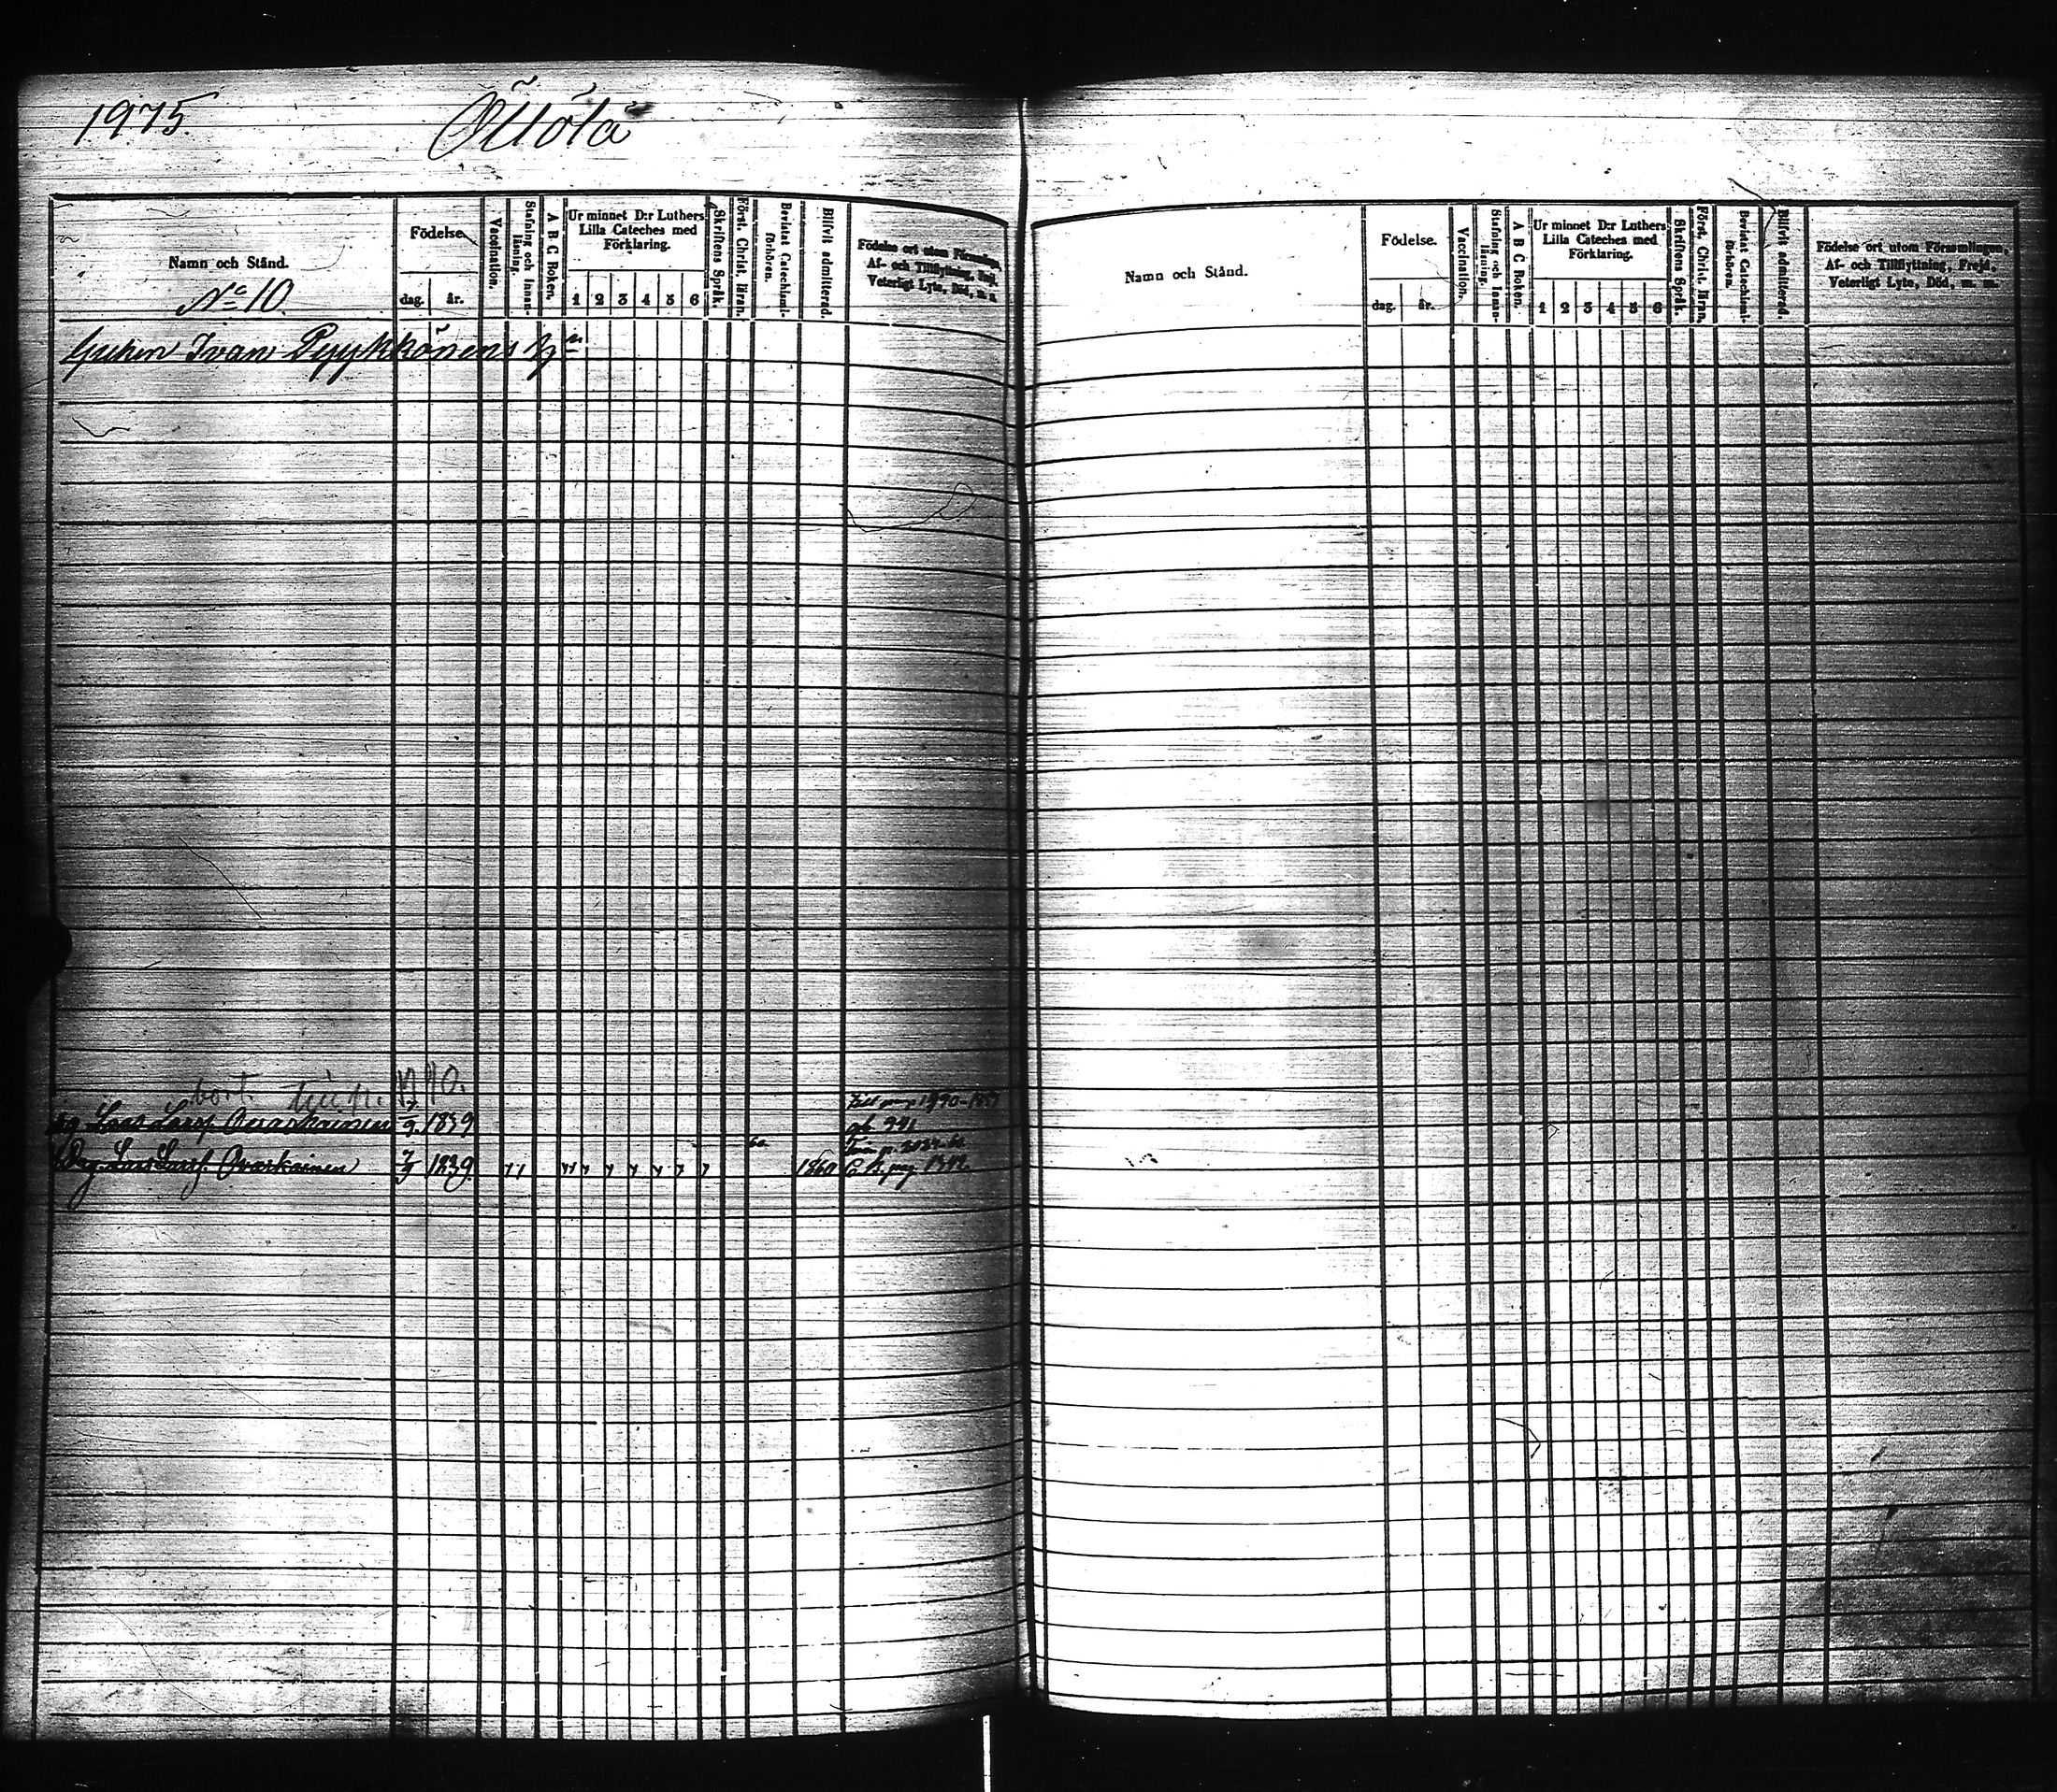 1975.
Öllölä
Namn och Stånd.
Födelse
dag. år.
Vaccination.
Stafning och Innan-läsning.
A B C Boken.
Ur minnet D:r Luthers
Lilla Cateches med
Förklaring.
1 2 3 4 5 6
Skriftens Språk.
Först. Christ. läran.
Bevistat Catechismi-förhören.
Blifvit admitterad.
Födelse ort utom Församlingen,
Af- och Tillflyttning, Frejd,
Veterligt Lyte, Död, m. m.
No 10.
Ivan Pyykkönens
bort.
Lars Larss. Ovaskainen 7/9 1839
Drg Lars Larss. Ovaskainen 7/9 1839. 1860
Namn och Stånd.
Födelse.
dag. år.
Vaccination.
Stafning och Innan-läsning.
A B C Boken.
Ur minnet D:r Luthers
Lilla Cateches med
Förklaring.
1 2 3 4 5 6
Skriftens Språk.
Först. Christ. läran.
Bevistat Catechismi-förhören.
Blifvit admitterad.
Födelse ort utom Församlingen,
Af- och Tillflyttning, Frejd,
Veterligt Lyte, Död, m. m.